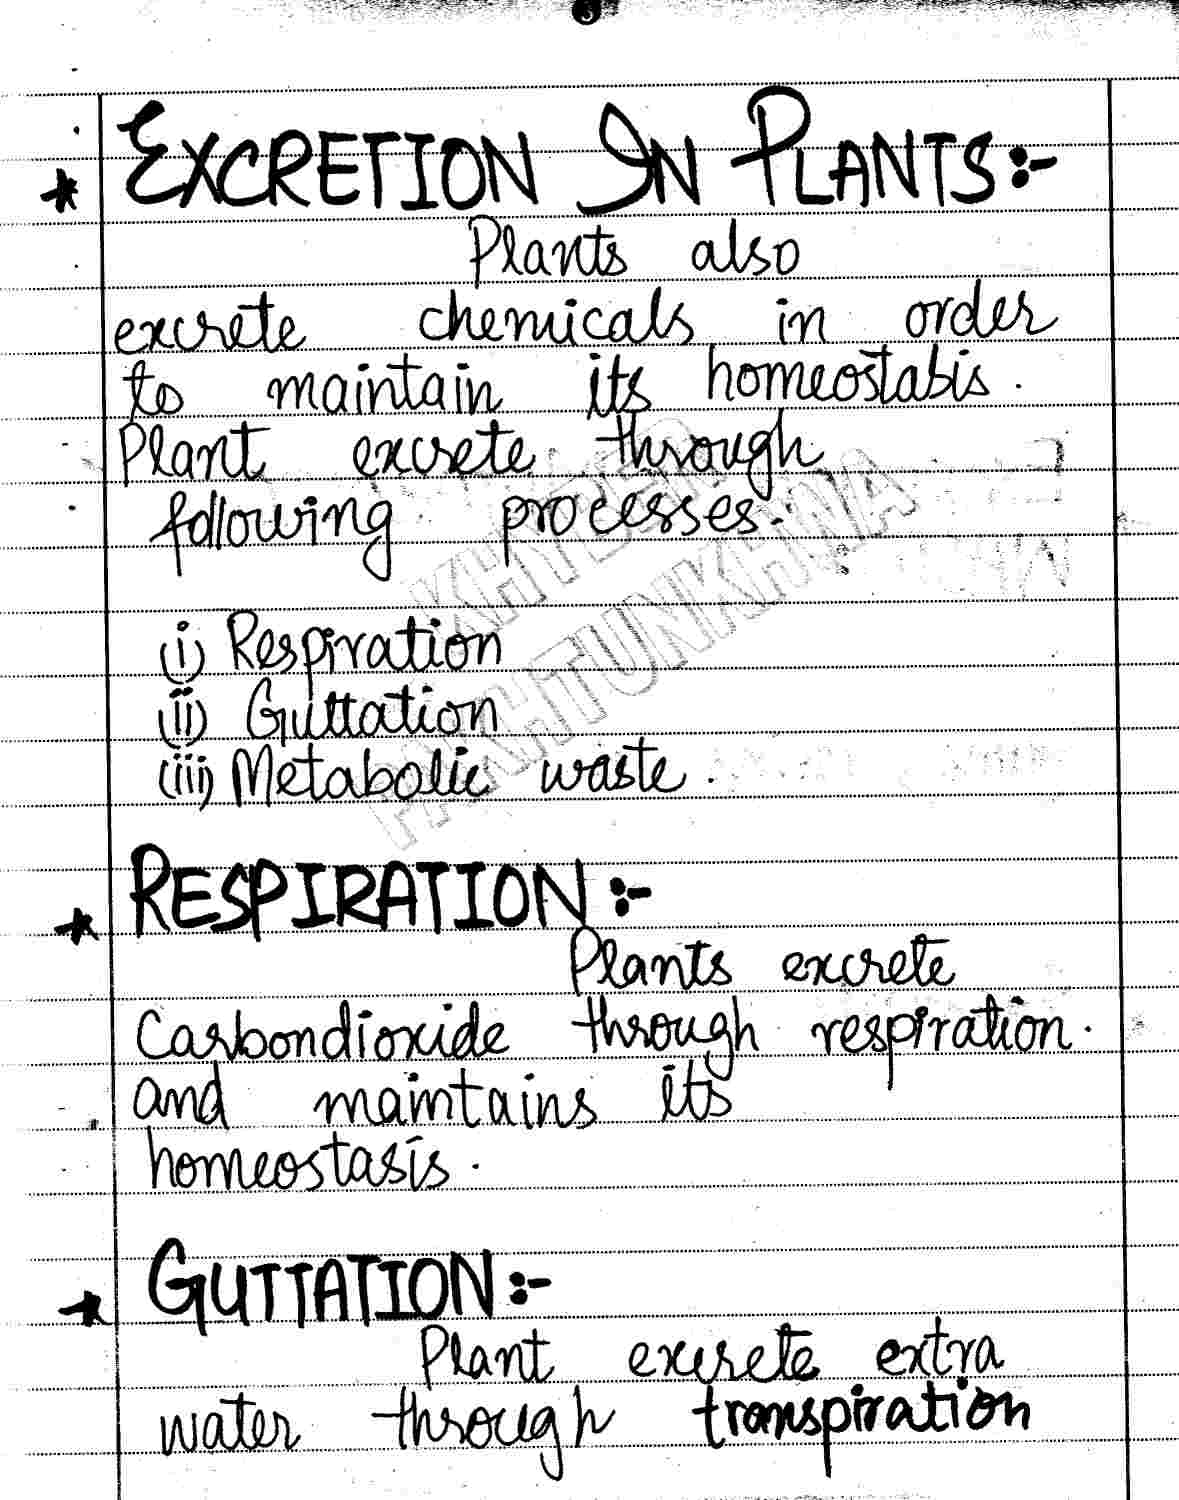 EXCRETION IN PLANTS:-
Plants also
excrete chemicals in order
to maintain its homeostabis.
Plant excrete through
following processes.
KHYBER
PAKHTUNKHWA
(i) Respiration
(ii) Guttation
(iii) Metabolic waste.
RESPIRATION:-
Plants excrete
Carbondioxide through respiration.
and maintains its
homeostasis.
GUTTATION:-
Plant excrete extra
water through transpiration